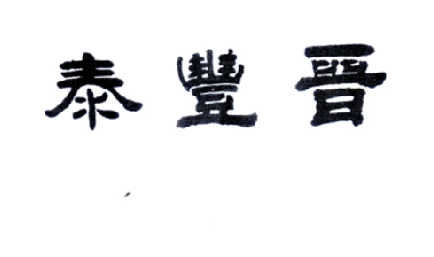 晉豐泰